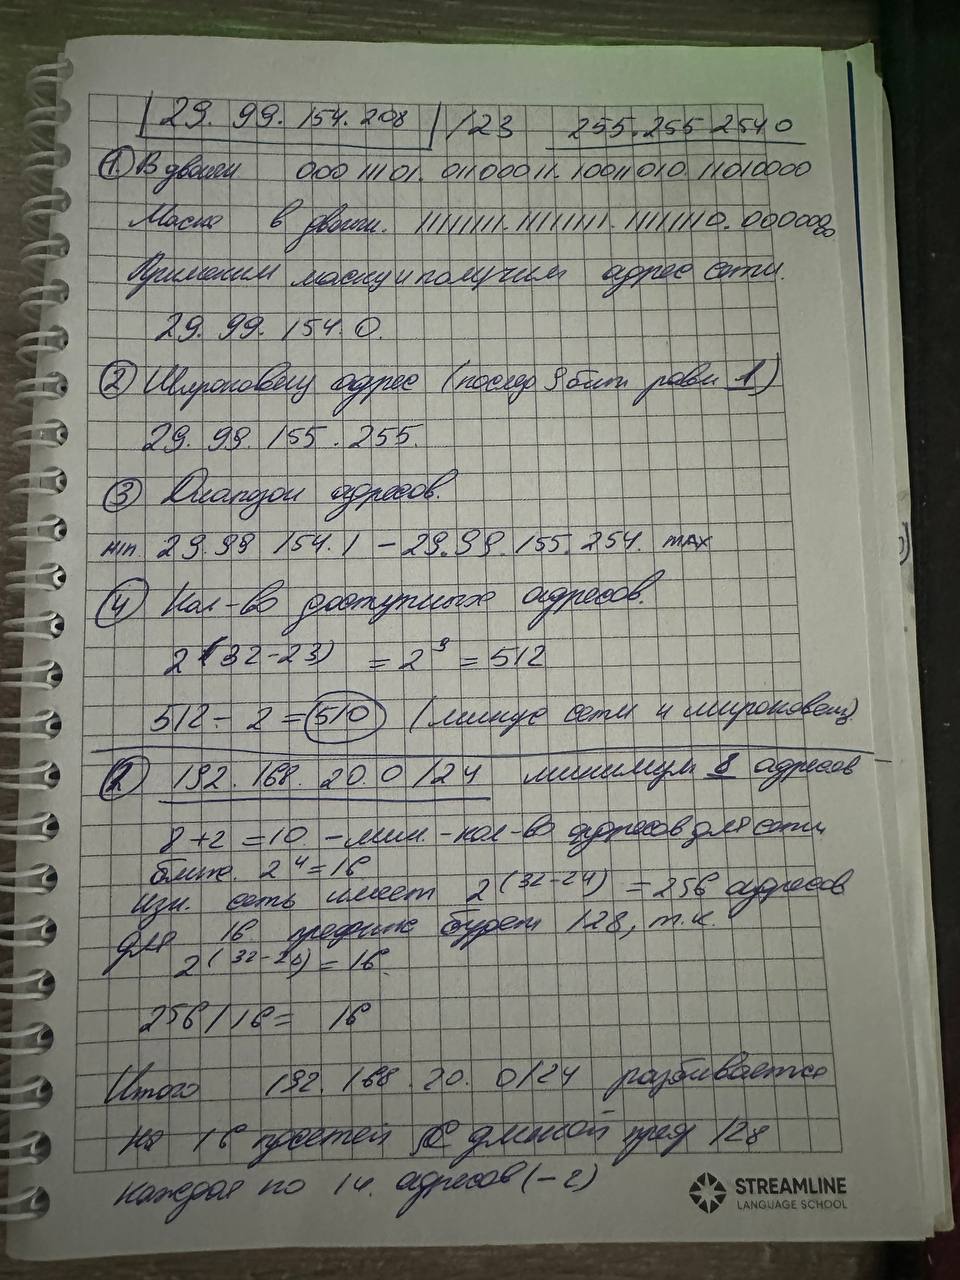 29. 99. 154. 208 /23 255.255 254 0
① В двоичн 00011101. 01100011. 10011010. 11010000
Маска в двоичн. 11111111. 11111111. 11111110. 00000000
Применим маску и получим адрес сети.
29. 99. 154. 0.
② Широковещ адрес (послед 9 бит равны 1)
29. 99. 155. 255.
③ Диапазон адресов.
min. 29. 99 154. 1 – 29. 99. 155. 254. max
④ Кол-во доступных адресов.
2^(32-23) = 2^9 = 512
512 - 2 = 510 (минус сети и широковещ)
② 192. 168. 20. 0 /24 минимум 8 адресов
8 + 2 = 10. – мин. - кол-во адресов для сети
ближ. 2^4 = 16
изн. сеть имеет 2^(32-24) = 256 адресов
для 16 префикс будет /28, т.к.
2^(32-28) = 16.
256 / 16 = 16
Итого 192. 168. 20. 0/24 разбивается
на 16 с длиной преф /28
каждая по 14. адресов (-2)
STREAMLINE
LANGUAGE SCHOOL